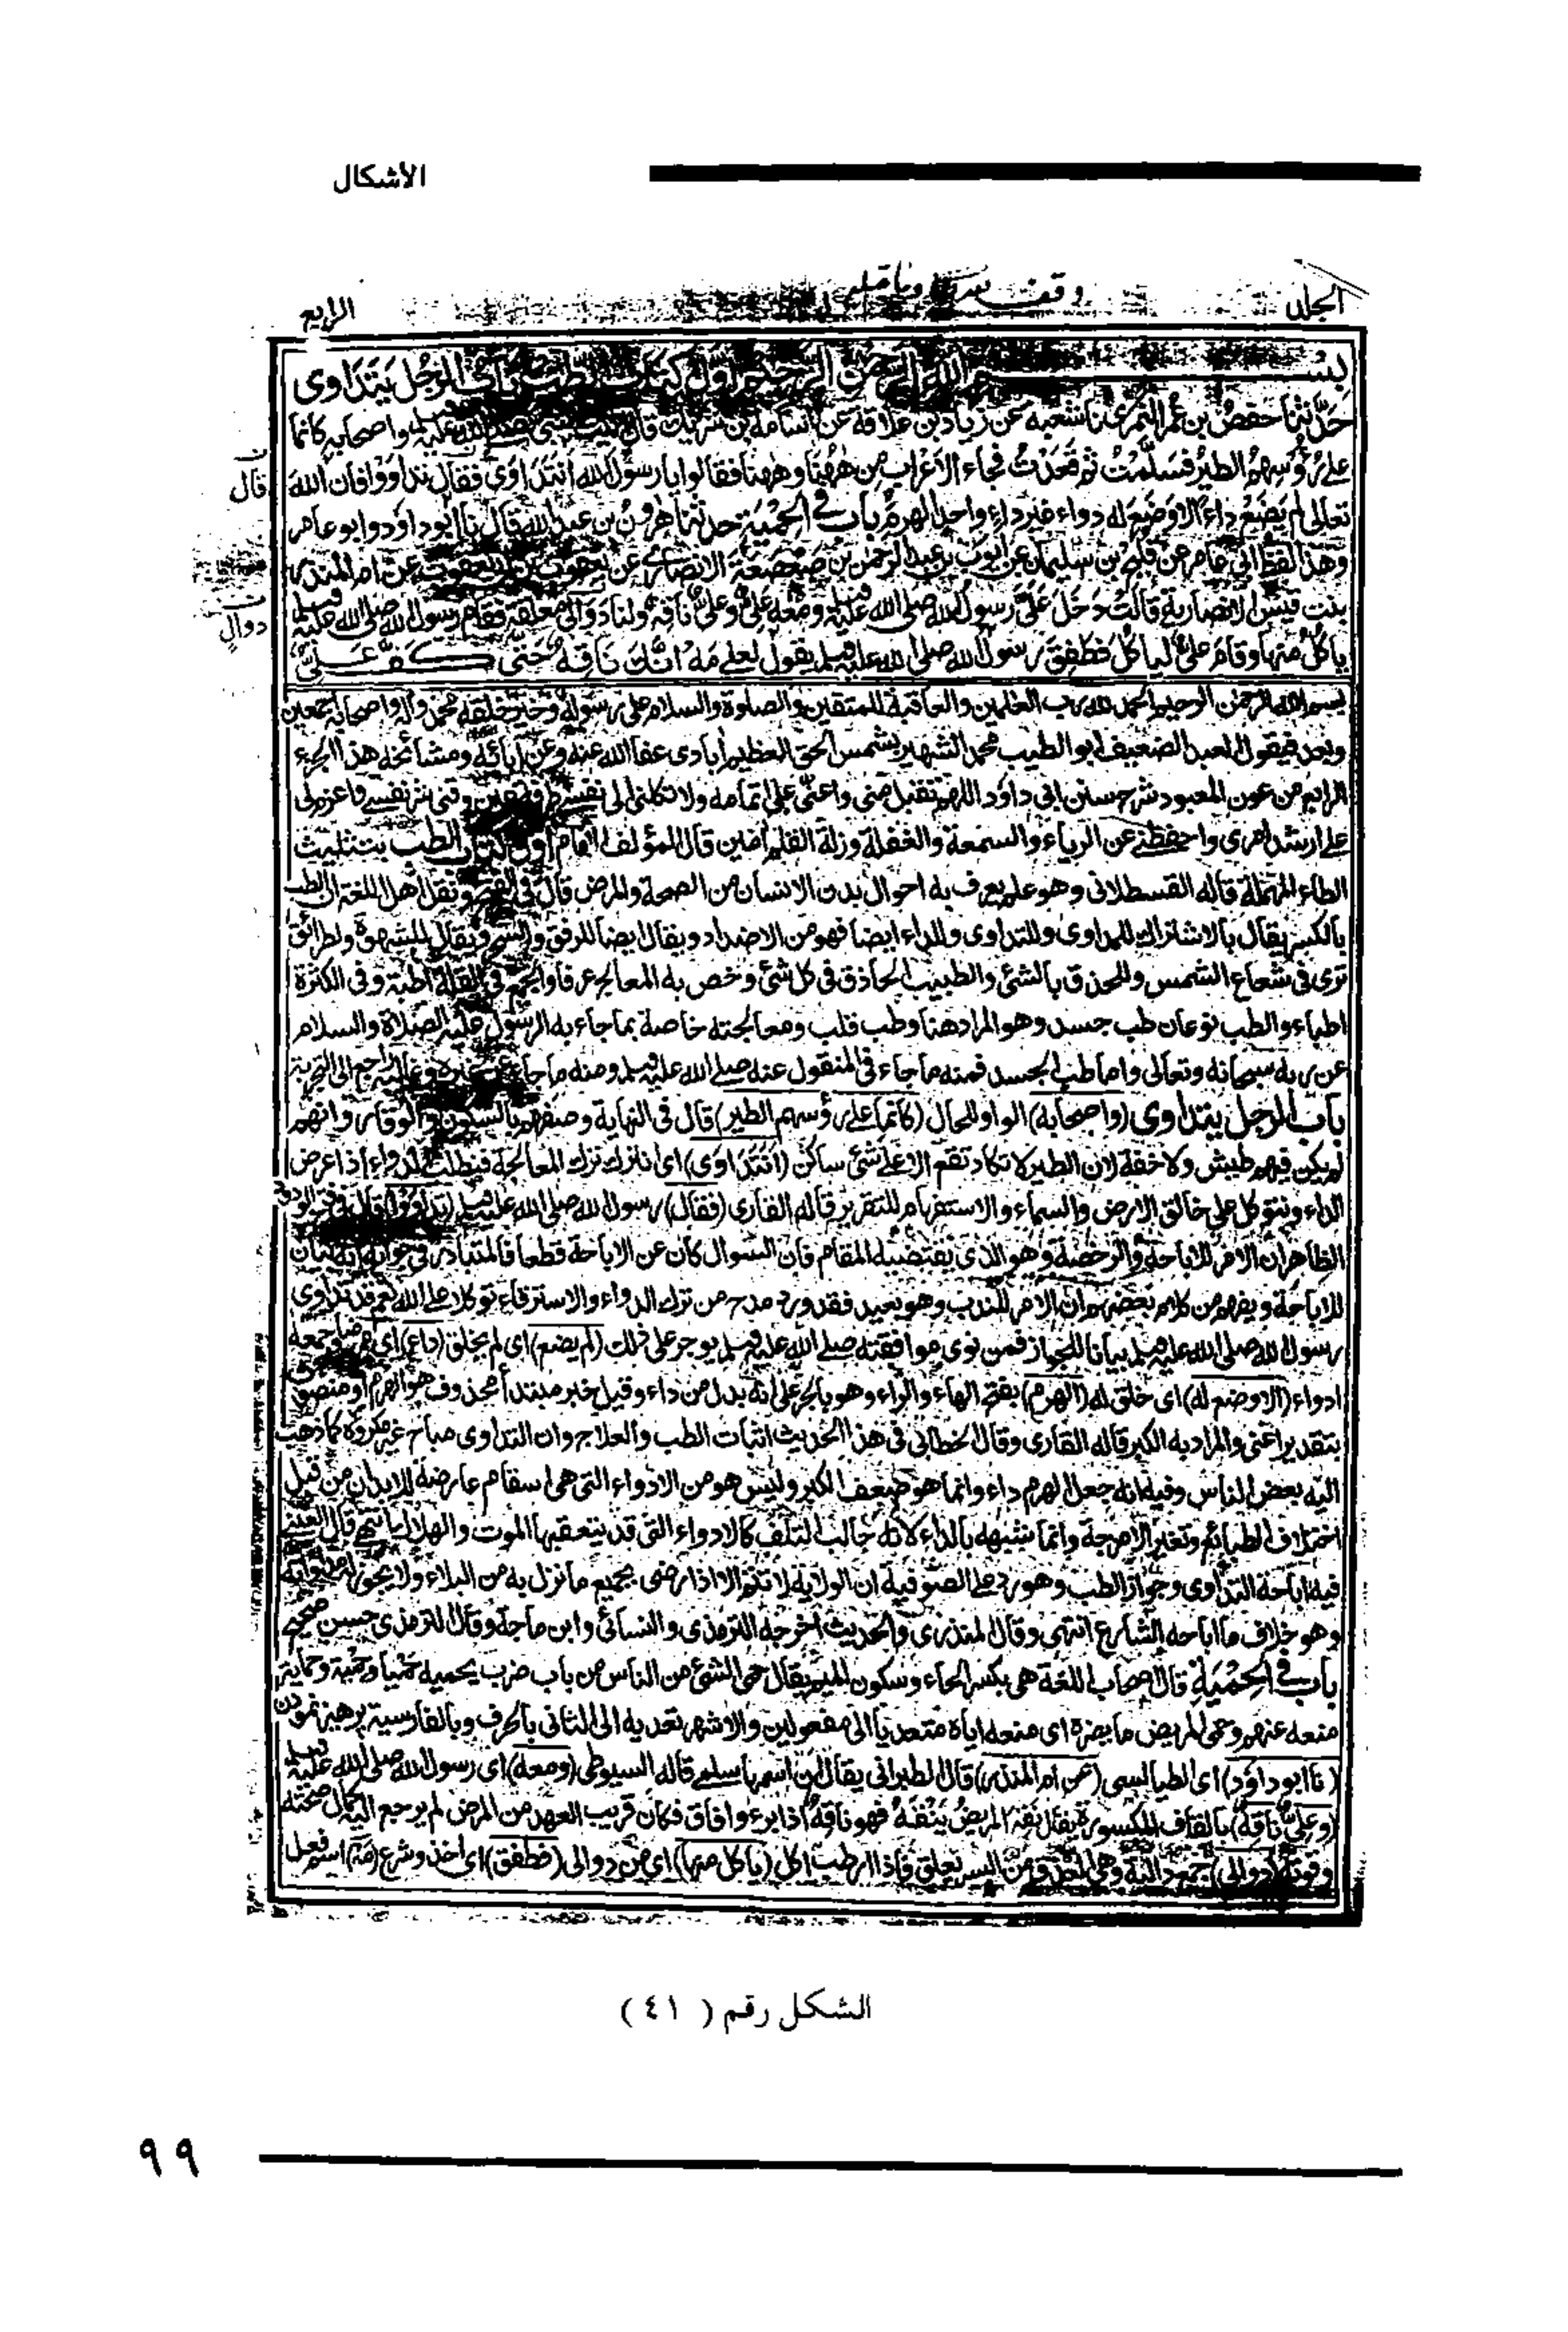 الأشكال
المجلد
الرابع
بسم الله الرحمن الرحيم أول كتاب الطب باب في الرجل يتداوى
حدثنا حفص بن عمر النمري نا شعبة عن زياد بن علاقة عن أسامة بن شريك قال أتيت النبي صلى الله عليه وسلم واصحابه كانما
على رؤسهم الطير فسلمت ثم قعدت فجاء الاعراب من ههنا وههنا فقالوا يا رسول الله انتداوى فقال تداووا فان الله
قال
تعالى لم يضع داء الا وضع له دواء غير داء واحد الهرم باب في الحمية حدثنا هرون بن عبد الله قال نا ابو داود وابو عامر
وهذا لفظ ابي عامر عن فليح بن سليمان عن ايوب بن عبد الرحمن بن صعصعة الانصاري عن يعقوب بن ابي يعقوب عن ام المنذر
بنت قيس الانصارية قالت دخل علي رسول الله صلى الله عليه وسلم ومعه علي وعلي ناقه ولنا دوالي معلقة فقام رسول الله صلى الله عليه وسلم
دوالٍ
ياكل منها وقام علي لياكل فطفق رسول الله صلى الله عليه وسلم يقول لعلي مه انك ناقه حتى كف علي
بسم الله الرحمن الرحيم الحمد لله رب العلمين والعاقبة للمتقين والصلوة والسلام على رسوله وخير خلقه محمد واله واصحابه اجمعين
وبعد فيقول العبد الضعيف ابو الطيب محمد الشهير بشمس الحق العظيم ابادي عفا الله عنه وعن ابائه ومشائخه هذا الجزء
الرابع من عون المعبود شرح سنن ابي داود اللهم تقبل مني واعني على اتمامه ولا تكلني الى نفسي طرفة عين وقني شر نفسي واعزم لي
على ارشد امري واحفظني عن الرياء والسمعة والغفلة وزلة القلم امين قال المؤلف الامام اول كتاب الطب بتثليث
الطاء المهملة قاله القسطلاني وهو علم يعرف به احوال بدن الانسان من الصحة والمرض قال في الفتح ونقل اهل اللغة ان الطب
بالكسر يقال بالاشتراك للمداوي وللتداوي وللداء ايضا فهو من الاضداد ويقال ايضا للرفق والسحر ويقال للشهوة ولطرائق
ترى في شعاع الشمس وللحذق بالشئ والطبيب الحاذق في كل شئ وخص به المعالج عرفا والجمع في القلة اطبة وفي الكثرة
اطباء والطب نوعان طب جسد وهو المراد هنا وطب قلب ومعالجته خاصة بما جاء به الرسول عليه الصلاة والسلام
عن ربه سبحانه وتعالى واما طب الجسد فمنه ما جاء في المنقول عنه صلى الله عليه وسلم ومنه ما جاء عن غيره وغالبه راجع الى التجربة
باب الرجل يتداوى (واصحابه) الواو للحال (كانما على رؤسهم الطير) قال في النهاية وصفهم بالسكون والوقار وانهم
لم يكن فيهم طيش ولا خفة لان الطير لا تكاد تقع الا على شئ ساكن (انتداوى) اي انترك ترك المعالجة فنطلب الدواء اذا عرض
الداء ونتوكل على خالق الارض والسماء والاستفهام للتقرير قاله القاري (فقال) رسول الله صلى الله عليه وسلم (تداووا) قال في فتح الودود
الظاهر ان الامر للاباحة والرخصة وهو الذي يقتضيه المقام فان السوال كان عن الاباحة قطعا فالمتبادر في جوابه انه بيان
للاباحة ويفهم من كلام بعضهم ان الامر للندب وهو بعيد فقد ورد مدح من ترك الدواء والاسترقاء توكلا على الله نعم قد تداوى
رسول الله صلى الله عليه وسلم بيانا للجواز فمن نوى موافقته صلى الله عليه وسلم يوجر على ذلك (لم يضع) اي لم يخلق (داء) اي مرضا جمعه
ادواء (الا وضع له) اي خلق له (الهرم) بفتح الهاء والراء وهو بالجر على انه بدل من داء وقيل خبر مبتدأ محذوف هو الهرم او منصوب
بتقدير اعني والمراد به الكبر قاله القاري وقال الخطابي في هذا الحديث اثبات الطب والعلاج وان التداوي مباح غير مكروه كما ذهب
اليه بعض الناس وفيه انه جعل الهرم داء وانما هو ضعف الكبر وليس هو من الادواء التي هي اسقام عارضة للابدان من قبل
اختلاف الطبائع وتغير الامزجة وانما شبهه بالداء لانه جالب التلف كالادواء التي قد يتعقبها الموت والهلاك انتهى قال العيني
فيه اباحة التداوي وجواز الطب وهو رد على الصوفية ان الولاية لا تتم الا اذا رضي بجميع ما نزل به من البلاء ولا يجوز له مداواته
وهو خلاف ما اباحه الشارع انتهى وقال المنذري والحديث اخرجه الترمذي والنسائي وابن ماجة وقال الترمذي حسن صحيح
باب في الحمية قال اصحاب اللغة هي بكسر الحاء وسكون الميم يقال حمى الشئ من الناس من باب ضرب يحميه حميا وحمية وحماية
منعه عنهم وحمى المريض ما يضره اي منعه اياه متعديا الى مفعولين والاشهر تعديه الى الثاني بالحرف وبالفارسية پرهيز نمودن
(نا ابو داود) اي الطيالسي (عن ام المنذر) قال الطبراني يقال ان اسمها سلمى قاله السيوطي (ومعه) اي رسول الله صلى الله عليه وسلم
(وعلي ناقه) بالقاف المكسورة يقال نقه المريض ينقه فهو ناقه اذا برء وافاق فكان قريب العهد من المرض لم يرجع اليه كمال صحته
وقوته (دوالي) جمع دالية وهي العذق من البسر يعلق فاذا ارطب اكل (ياكل منها) اي من دوالي (فطفق) اي اخذ وشرع (مه) اسم فعل
الشكل رقم ( ٤١ )
٩٩